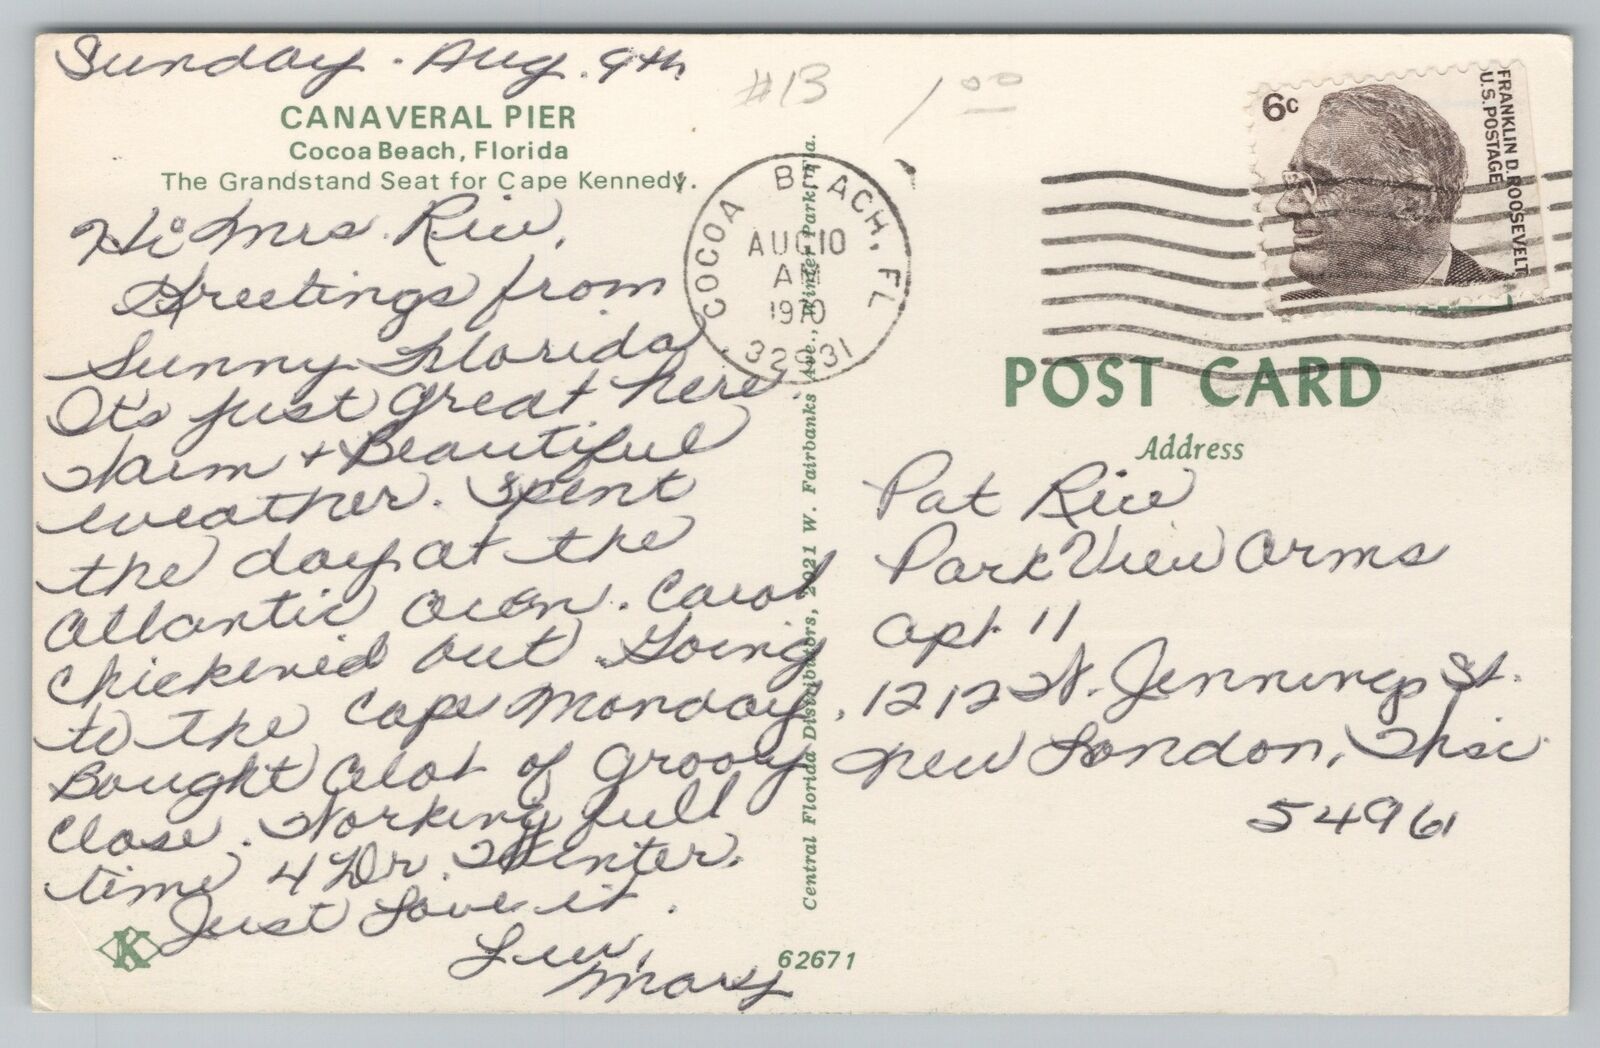 Sunday. Aug. 9th
#13
1 00
CANAVERAL PIER
Cocoa Beach, Florida
The Grandstand Seat for Cape Kennedy.
Hi Mrs. Rice,
Greetings from
Sunny Florida
It's just great here.
Warm + Beautiful
weather. Spent
the day at the
Atlantic Ocen. Carol
Chickenied out. Going
to the Cape Monday.
Bought alot of groovy
close. Working full
time 4 Dr. Winter.
Just Love it.
Luv,
Mary
K
62671
Central Florida Distributors, 2021 W. Fairbanks Ave., Winter Park, Fla.
COCOA BEACH, FL
AUG 10
AM
1970
32931
6c
FRANKLIN D. ROOSEVELT
U.S. POSTAGE
POST CARD
Address
Pat Rice
Park View Arms
Apt. 11
1212 W. Jennings St.
New London, Wisc
54961